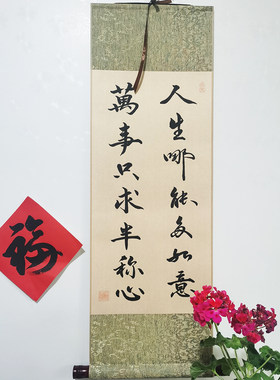 人生哪能多如意
萬事只求半称心
福